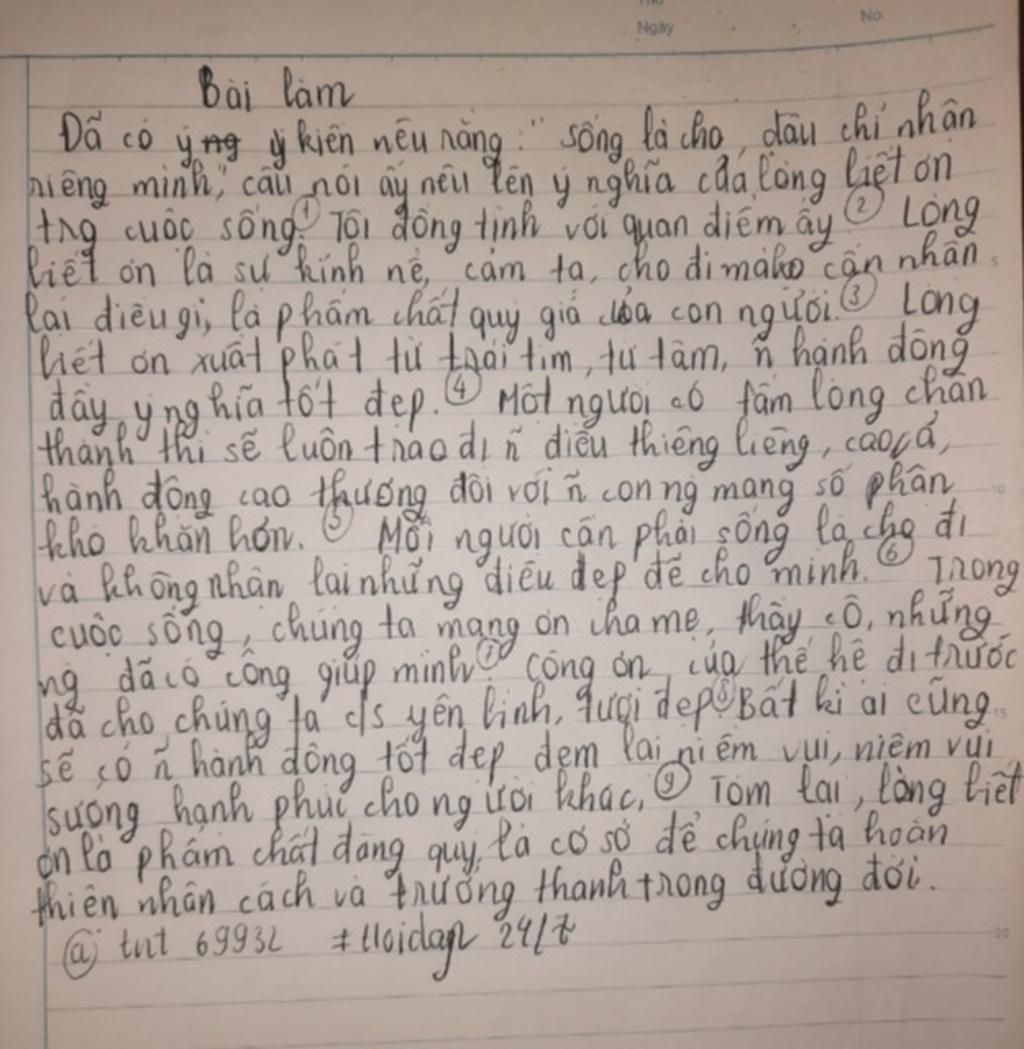 Thứ
Ngày No.
Bài làm
Đã có ý kiến nêu rằng: "Sống là cho, đâu chỉ nhận
riêng mình", câu nói ấy nêu lên ý nghĩa của lòng biết ơn
trg cuộc sống. ① Tôi đồng tình với quan điểm ấy. ② Lòng
biết ơn là sự kính nể, cảm tạ, cho đi mà ko cần nhận
lại điều gì, là phẩm chất quý giá của con người. ③ Lòng
biết ơn xuất phát từ trái tim, từ tâm, ñ hành động
đầy ý nghĩa tốt đẹp. ④ Một người có tấm lòng chân
thành thì sẽ luôn trao đi ñ điều thiêng liêng, cao cả,
hành động cao thượng đối với ñ con ng mang số phận
khó khăn hơn. ⑤ Mỗi người cần phải sống là cho đi
và không nhận lại những điều đẹp đẽ cho mình. ⑥ Trong
cuộc sống, chúng ta mang ơn cha mẹ, thầy cô, những
ng đã có công giúp mình. ⑦ Công ơn của thế hệ đi trước
đã cho chúng ta c/s yên bình, tươi đẹp. ⑧ Bất kì ai cũng
sẽ có ñ hành động tốt đẹp đem lại niềm vui, niềm vui
sướng hạnh phúc cho người khác. ⑨ Tóm lại, lòng biết
ơn là phẩm chất đáng quý, là cơ sở để chúng ta hoàn
thiện nhân cách và trưởng thành trong đường đời.
@ tnt 69932 #Hoidap 24/7